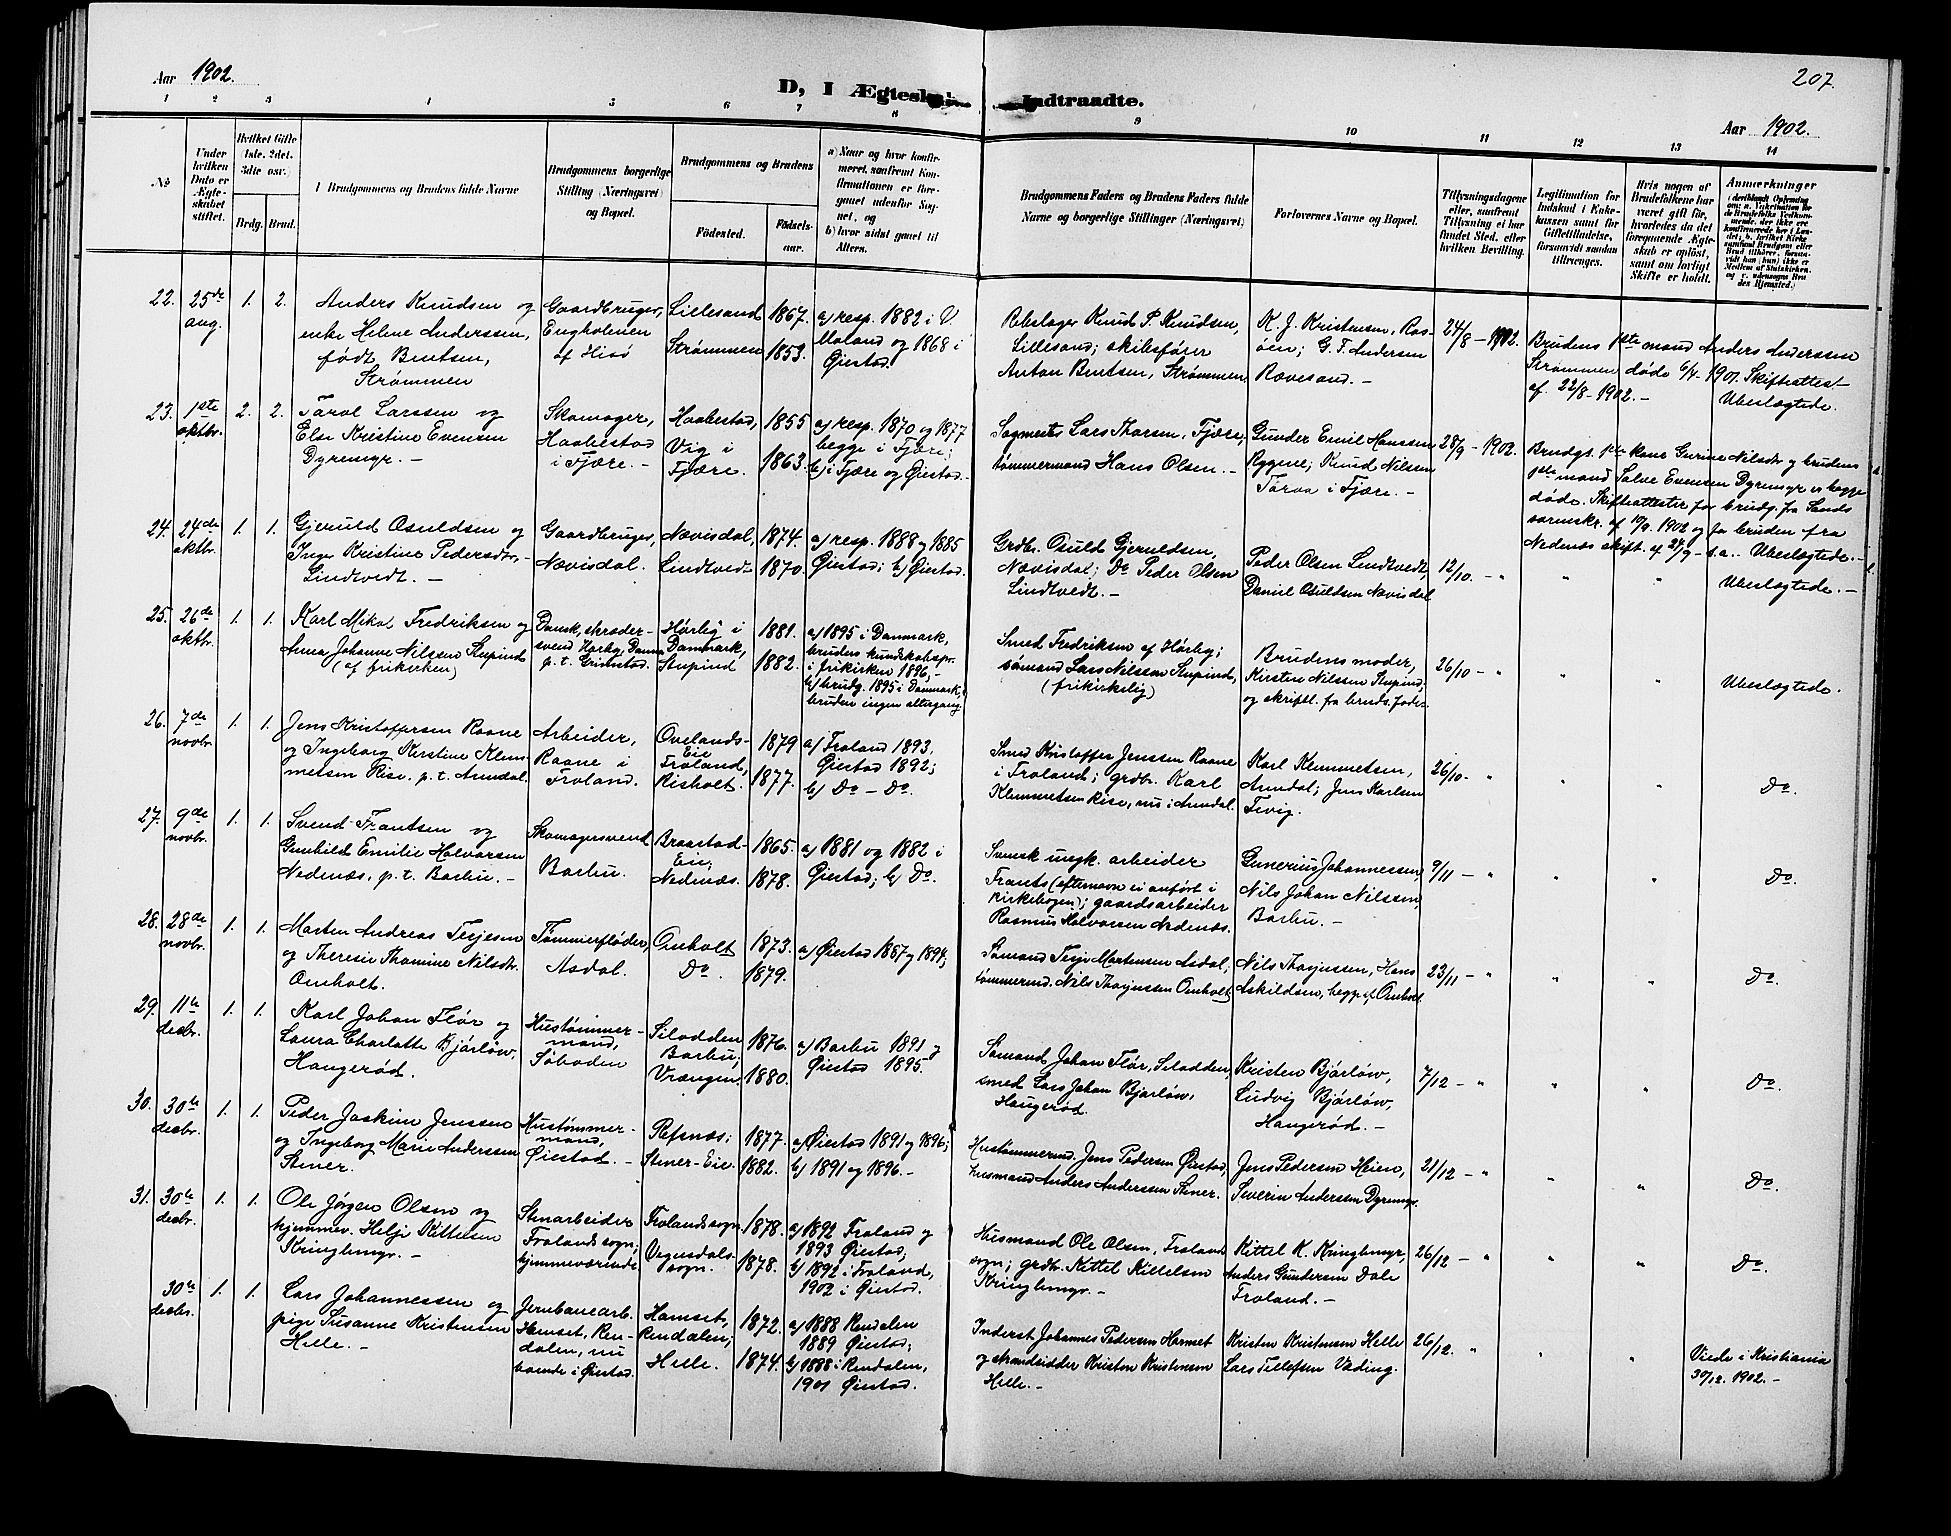 Aar 1902.
D, I Ægtesk
Indtraadte.
207.
Aar 1902.
1 2 3 4 5 6 7 8 9 10 11 12 13 14
No
Under hvilken Dato er Ægteskabet stiftet.
Hvilket Gifte (1ste, 2det, 3dte osv.)
Brdg. Brud.
Brudgommens og Brudens fulde Navne
Brudgommens borgerlige Stilling (Næringsvei) og Bopæl.
Brudgommens og Brudens
Födested.
Födselsaar.
a) Naar og hvor konfirmeret, samfremt Konfirmationen er foregaaet udenfor Sognet, og
b) hvor sidst gaaet til Alters.
Brudgommens Faders og Brudens Faders fulde Navne og borgerlige Stillinger (Næringsvei)
Forlovernes Navne og Bopæl.
Tillysningsdagene eller, samfremt Tillysning ei har fundet Sted, efter hvilken Bevilling.
Legitimation for Indskud i Enkekassen samt for Giftetilladelse, forsaavidt saadan tiltrænges.
Hvis nogen af Brudefolkene har været gift før, hvorledes da det foregaaende Ægteskab er opløst, samt om lovligt Skifte er holdt.
Anmærkninger
22. 25de aug. 1. 2.
Anders Knudsen og
enke Helene Anderssen,
født Bentsen,
Strømmen
Gaardbruger,
Engholmen
af Hisö
Lillesand
Strømmen
1867.
1853.
a) resp. 1882 i V.
Moland og 1868 i
Øiestad.
Rebslager Knud P. Knudsen,
Lillesand; skibsfører
Anton Bentsen, Strømmen
K. J. Kristensen, Ras-
öen; G. T. Andersen
Rævesand. -
24/8 - 1902.
Brudens 1ste mand Anders Anderssen
Strømmen døde 6/4 - 1901. Skifteattest
af 22/8 - 1902. -
Ubeslægtede.
23. 1ste oktbr. 2. 2.
Tarol Larssen og
Else Kristine Evensen
Dyremyr. -
Skomager,
Haabestad
i Fjære. -
Haabestad,
Vig i
Fjære.
1855
1863.
a) resp. 1870 og 1877
begge i Fjære;
b) i Fjære og Øiestad. -
Sagmester Lars Thorsen, Fjære;
tømmermand Hans Olsen. -
Gunder Emil Hanssen
Rygene; Knud Nilssen
Tarva i Fjære. -
28/9 - 1902.
Brudgs. 1ste kone Gurine Nilsdtr og brudens
1ste mand Salve Evensen Dyremyr er begge
døde. Skifteattester for brudg. fra Sands
sorenskr. af 19/9. 1902 og for bruden fra
Nedenæs skift. af 27/9 - s.a. Ubeslægtede. -
24. 24de oktbr. 1. 1.
Gjeruld Osuldsen og
Inger Kristine Pedersdtr,
Lindtvedt. -
Gaardbruger,
Nævisdal.
Nævisdal,
Lindtvedt
1874.
1870.
a) resp. 1888 og 1885
Øiestad; b) Øiestad.
Grdbr. Osuld Gjeruldsen,
Nævisdal; Do Peder Olsen
Lindtvedt. -
Peder Olsen Lindtvedt,
Daniel Osuldsen Nævisdal
12/10. - "
"
"
Ubeslægtede. -
25. 26de oktbr. 1. 1.
Karl Mikal Fredriksen og
Anna Johanne Nilssen Stupind
(af frikirken)
Dansk, skræder-
svend Hørby, Danm.
p. t. Grimstad.
Hørby i
Danmark,
Stupind
1881.
1882.
a) 1895 i Danmark,
brudens kundskabspr.
i frikirken 1896, -
b) brudg. 1895 i Danmark,
bruden ingen altergang.
Smed Fredriksen af Hørby;
sømand Lars Nilssen Stupind,
(frikirkelig)
Brudens moder,
Kirsten Nilssen Stupind;
og skriftl. fra bruds. fader.
26/10 - "
"
"
Ubeslægtede.
26. 7de novbr. 1. 1.
Jens Kristoffersen Raane
og Ingeborg Kirstine Klem-
metsen Rise. p. t. Arendal.
Arbeider,
Raane i
Froland.
Ovelands-
Eie
Froland,
Risholt.
1879
1877.
a) Froland 1893.
Øiestad 1892;
b) Do - Do.
Smed Kristoffer Jenssen Raane
i Froland; grdbr. Karl
Klemmetsen Rise, nu i Arendal.
Karl Klemmetsen,
Arendal; Jens Karlsen
Tevig.
26/10 - "
"
"
Do.
27. 9de novbr. 1. 1.
Svend Frantsen og
Gunhild Emilie Halvorsen
Nedenæs, p. t. Barbu. -
Skomagersvend
Barbu.
Braastad-
Eie;
Nedenæs.
1865.
1878.
a) 1881 og 1882 i
Øiestad; b) Do.
Svensk ungk. arbeider
Frants (efternavn ei anført i
kirkebogen); gaardsarbeider
Rasmus Halvorsen Nedenæs.
Gunerius Johannessen,
Nils Johan Nilssen,
Barbu. -
9/11 - "
"
"
Do.
28. 28de novbr. 1. 1.
Morten Andreas Terjesen
og Theresie Thomine Nilsdtr.
Omholt.
Tømmerfløder,
Asdal.
Omholt
Do.
1873.
1879.
a) Øiestad 1887 og 1894;
Sømand Terje Mortensen Asdal;
tømmermd. Nils Thorjussen Omholt
Nils Thorjussen, Hans
Askildsen, begge af Omholt
23/11 - "
"
"
Do.
29. 11te decbr. 1. 1.
Karl Johan Flør og
Laura Charlotte Bjørløw,
Haugerød.
Hustømmer-
mand,
Søboden
Silodden
Barbu,
Vrængen.
1876.
1880.
a) Barbu 1891 og
Øiestad 1895.
Sømand Johan Flør, Silodden,
smed Lars Johan Bjørløw,
Haugerød.
Kristen Bjørløw,
Ludvig Bjørløw,
Haugerød. -
7/12 - "
"
"
Do.
30. 30te decbr. 1. 1.
Peder Joakim Jenssen
og Ingeborg Marie Anderssen
Stener.
Hustømmer-
mand,
Øiestad. -
Refsnæs;
Stener-Eie.
1877.
1882.
a) Øiestad 1891 og 1896;
b) 1891 og 1896. -
Hustømmermd. Jens Pedersen Øiestad,
husmand Anders Anderssen Stener.
Jens Pedersen Heien,
Severin Anderssen Dyremyr.
21/12 - "
"
"
Do.
31. 30te decbr. 1. 1.
Ole Jørgen Olsen og
hjemmev. Helje Kittelsen
Kringlemyr. -
Stenarbeider
Frolands sogn;
hjemmeværende
Frolands sogn
Vegusdals
sogn.
1878.
1878.
a) 1892 Froland og
1893 Øiestad;
b) 1892 i Froland,
1902 i Øiestad.
Husmand Ole Olsen, Frolands
sogn; grdbr. Kittel Kittelsen
Kringlemyr. -
Kittel K. Kringlemyr,
Anders Gundersen Dale
Froland. -
26/12 - "
"
"
Do.
30te decbr. 1. 1.
Lars Johannessen og
pige Susanne Kristensen
Helle. -
Jernbanearb.
Hamset, Ren-
dalen, nu
boende i Øiestad.
Hamset,
Rendalen;
Helle.
1872.
1874.
a) 1888 Rendalen
1889 Øiestad;
b) 1888 i Rendalen,
1901 Øiestad.
Inderst Johannes Pedersen Hamset
og strandsidder Kristen Kristensen
Helle. -
Kristen Kristensen Helle
Lars Tellefsen Vading.
26/12. "
"
"
Viede i Kristiania
30/12. 1902. -